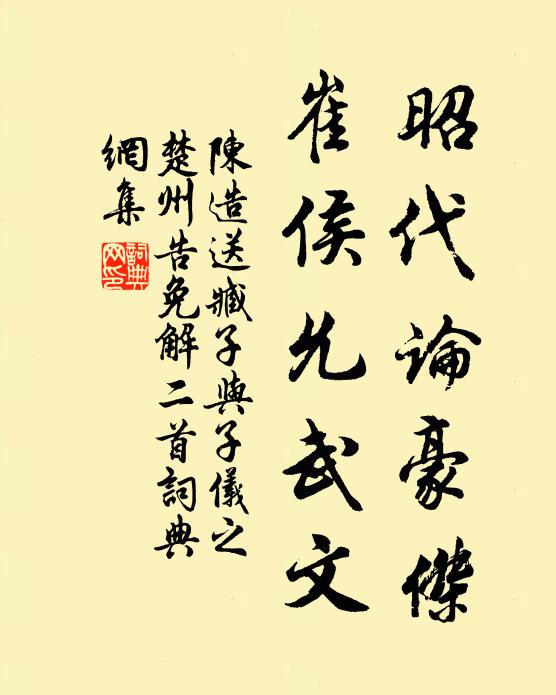 昭代論豪傑
崔侯允武文
陳造送臧子與子儀之
楚州告免解二首詞典
網集
詞典網印